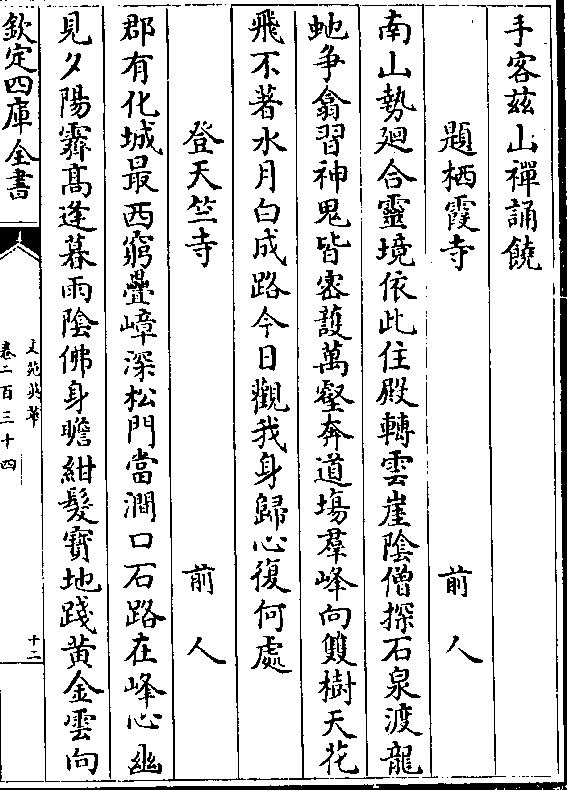 手客玆山禪誦饒
題栖霞寺 前人
南山勢廻合靈境依此住殿轉雲崖陰僧探石泉渡龍
虵争翕習神鬼皆密護萬壑奔道塲羣峰向雙樹天花
飛不著水月白成路今日觀我身歸心復何處
登天竺寺 前人
郡有化城最西窮疊嶂深松門當澗口石路在峰心幽
見夕陽霽髙逢暮雨陰佛身瞻紺髮寳地踐黄金雲向
欽定四庫全書
文苑英華
卷二百三十四
十二